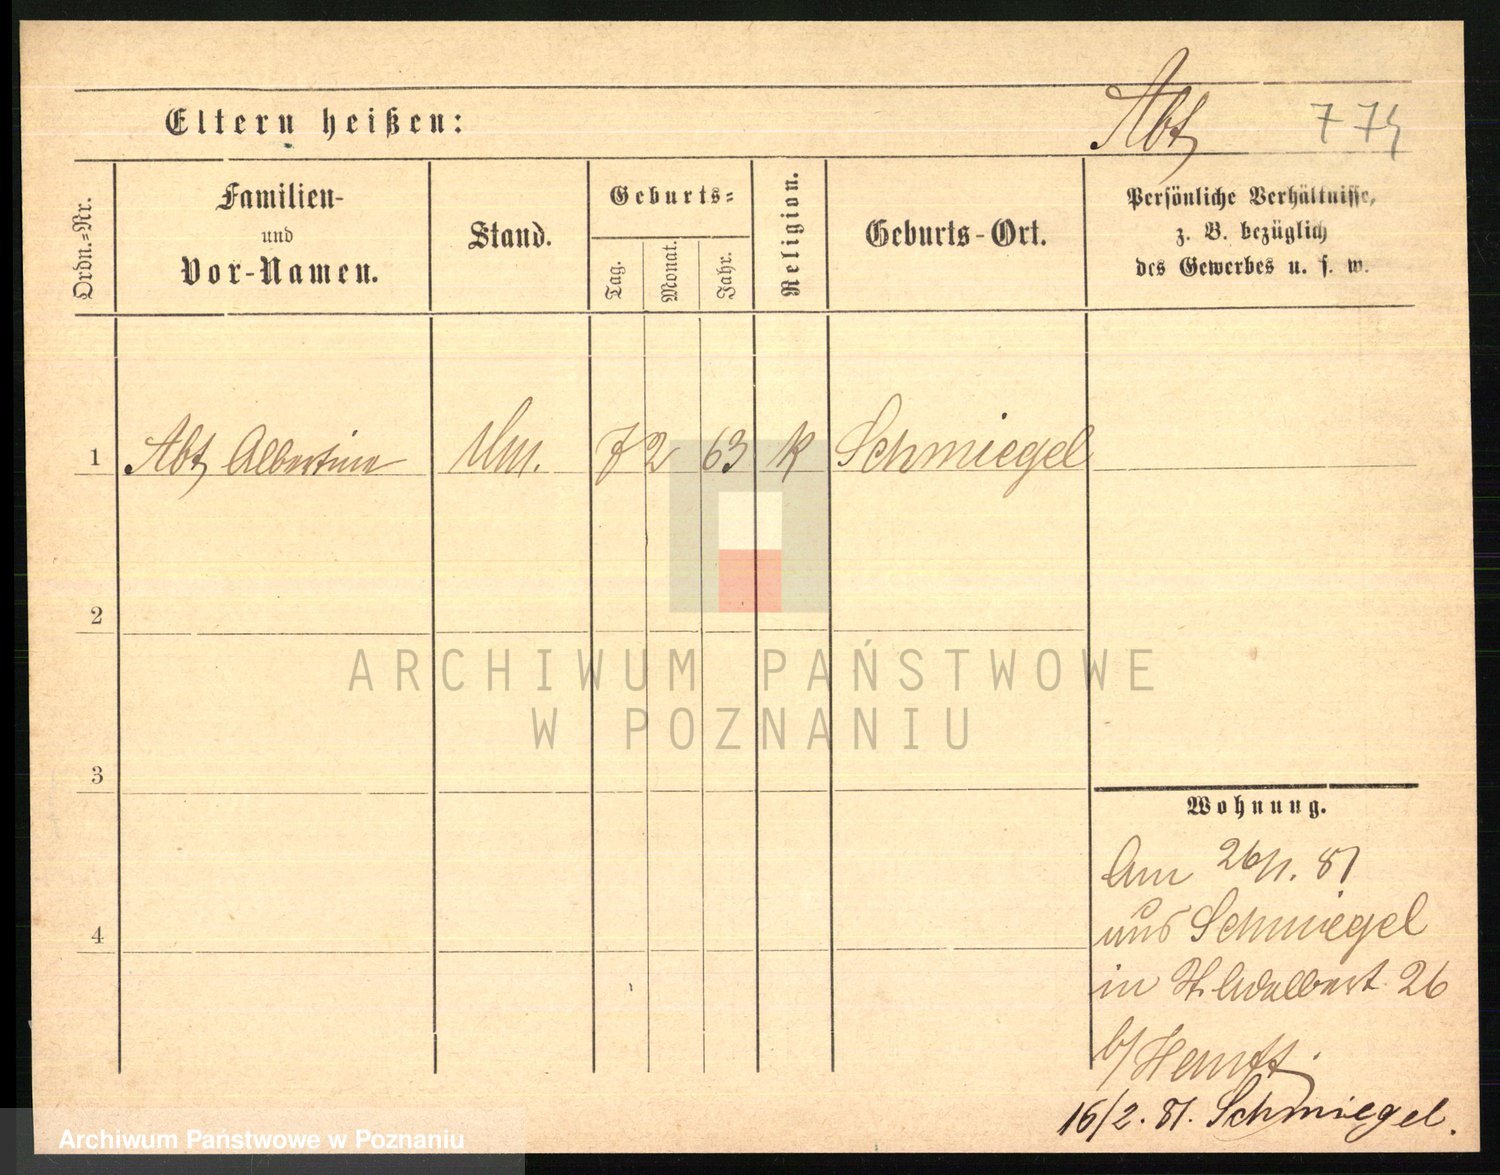 Eltern heißen:
Abt
Ordn.-Nr.
Familien-
und
Vor-Namen.
Stand.
Geburts-
Tag.
Monat.
Jahr.
Religion.
Geburts-Ort.
Persönliche Verhältnisse,
z. B. bezüglich
des Gewerbes u. s. w.
1 Abt Albertine 7 2 63 K Schmiegel
2
ARCHIWUM PAŃSTWOWE
W POZNANIU
3
Wohnung.
Am 26/1. 81
aus Schmiegel
4
in St. Adalbert 26
b/
16/2. 81. Schmiegel.
Archiwum Państwowe w Poznaniu